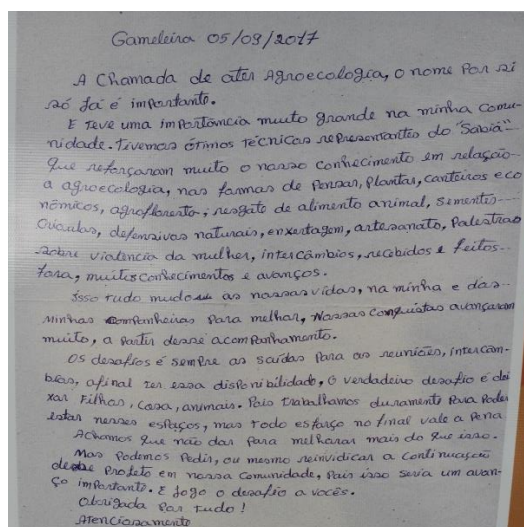 Gameleira 05/09/2017
A Chamada de ater Agroecologia, o nome Por si
só já é importante.
E Teve uma importância muito grande na minha comu-
nidade. Tivemos ótimos Técnicos representantes do "Sabiá"
que reforçaram muito o nosso conhecimento em relação
a agroecologia, nas formas de Pensar, Plantar, canteiros eco
nômicos, agrofloresta; resgate de alimento animal, sementes
crioulas, defensivos naturais, enxertagem, artesanato, Palestras
sobre violencia da mulher, intercâmbios, recebidos e feitos
fora, muitos conhecimentos e avanços.
Isso Tudo mudou as nossas vidas, na minha e das
minhas companheiras Para melhor, Nossas conquistas avançaram
muito, a Partir desse acompanhamento.
Os desafios é sempre as saídas Para as reuniões, intercâm-
bios, afinal ter essa disponibilidade, o verdadeiro desafio é dei
xar Filhos, casa, animais. Pois Trabalhamos duramente Para Poder
estar nesses espaços, mas Todo esforço no final vale a Pena
Achamos que não das Para melhorar mais do que isso.
Mas Podemos Pedir, ou mesmo reinvidicar a Continuação
desse Projeto em nossa Comunidade, Pois isso seria um avan-
ço importante. E jogo o desafio a vocês.
Obrigada Por Tudo!
Atenciosamente